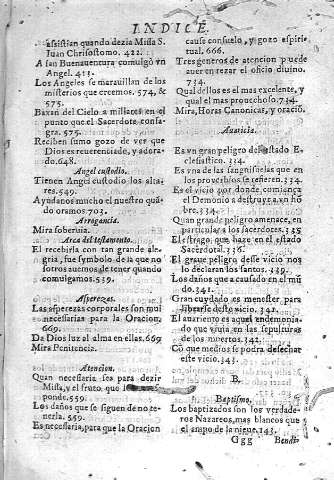 INDICE.
assistian quando dezia Missa S.
Iuan Chrisostomo. 422.
A san Buenauentura comulgò vn
Angel. 423.
Los Angeles se marauillan de los
misterios que creemos. 574, &
575.
Baxan del Cielo a millares en el
punto que el Sacerdote consa-
gra. 575.
Reciben sumo gozo de ver que
Dios es reuerenciado, y adora-
do. 648.
Angel custodio.
Tienen Angel custodio los alta-
res. 549.
Ayudanos mucho el nuestro quã-
do oramos 703.
Arrogancia.
Mira soberuia.
Arca del testamento.
El recebirla con tan grande ale-
gria, fue symbolo de la que no
sotros auemos de tener quando
comulgamos. 539.
Asperezas.
Las asperezas corporales son mui
necessarias para la Oracion.
669.
Da Dios luz al alma en ellas. 669
Mira Penitencia.
Atencion.
Quan necessaria sea para dezir
Missa, y el fruto que
ponde. 559.
Los daños que se siguen de no te-
nerla. 559.
Es necessaria, para que la Oracion
cause consuelo, y gozo espiri-
tual. 666.
Tres generos de atencion puede
auer en rezar el oficio diuino.
734.
Qual dellos es el mas excelente, y
qual el mas prouechoso. 734.
Mira, Horas Canonicas, y oració.
Auaricia.
Es vn gran peligro del estado E-
clesiastico. 334.
Es vna de las sanguisuelas que en
los prouerbios se refieren. 334.
Es el vicio por donde comiença
el Demonio a destruyr a vn hõ
bre. 334.
Quan grande peligro amenece, en
particular a los sacerdotes. 335
El estrago que haze en el estado
Sacerdotal. 336.
El graue peligro desse vicio nos
lo declararon los santos. 339.
Los daños que a causado en el mũ
do. 341.
Gran cuydado es menester para
librarse desto vicio. 341.
El auariento es aquel endemonia-
do que viuia en las sepulturas
de los muertos. 342.
Cõ que medios se podra desechar
este vicio. 343.
B.
Baptismo.
Los baptizados son los verdade-
ros Nazareos, mas blancos que
el ampo de la nieue. 343.
Ggg
Bendi-